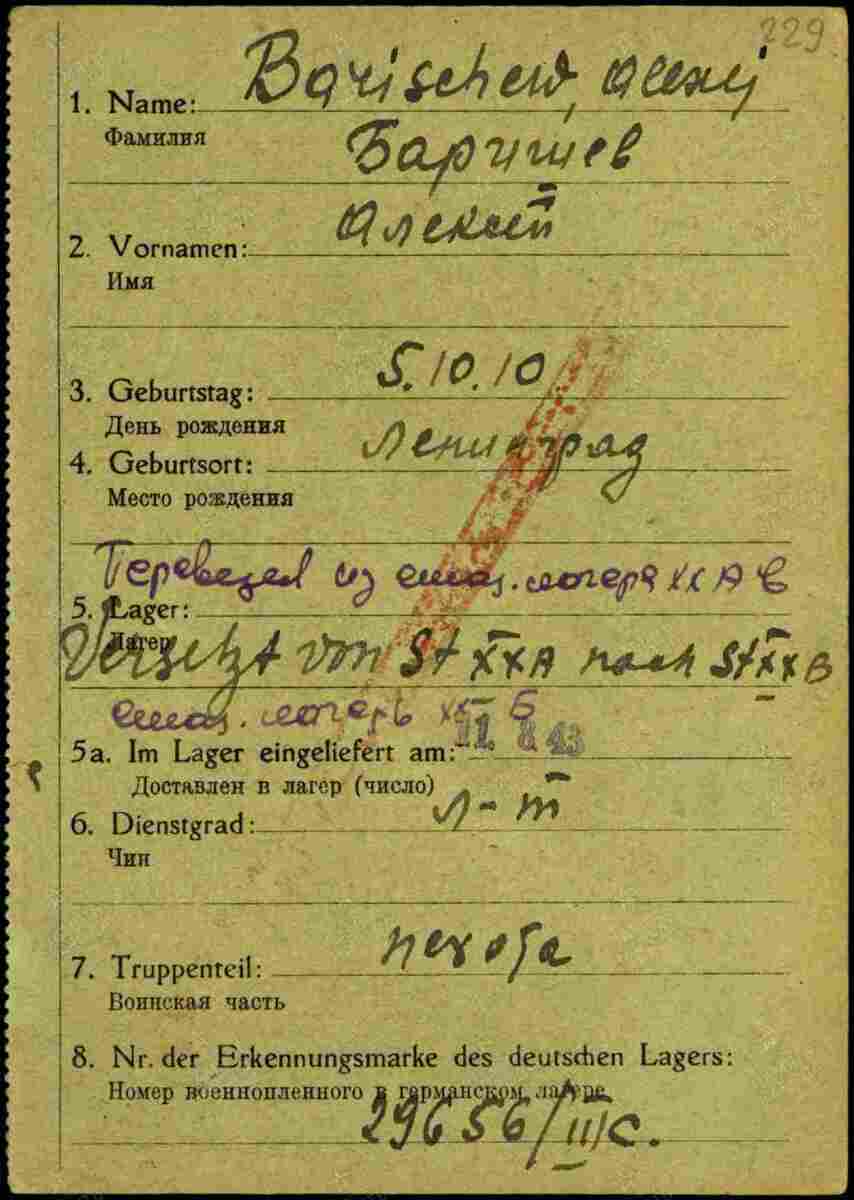 229
1. Name: Barischew, Alexej
Фамилия
Баришев
Алексей
2. Vornamen:
Имя
5.10.10
3. Geburtstag:
День рождения
Ленинград
4. Geburtsort:
Место рождения
Переведен из стац. лагера XX A в
5. Lager:
Лагер
Versetzt von St XXA nach St XXB
стац. лагерь XX Б
5a. Im Lager eingeliefert am: 11. 8 43
Доставлен в лагер (число)
л-т
6. Dienstgrad:
Чин
пехота
7. Truppenteil:
Воинская часть
8. Nr. der Erkennungsmarke des deutschen Lagers:
Номер военнопленного в германском лагере
29656/III C.